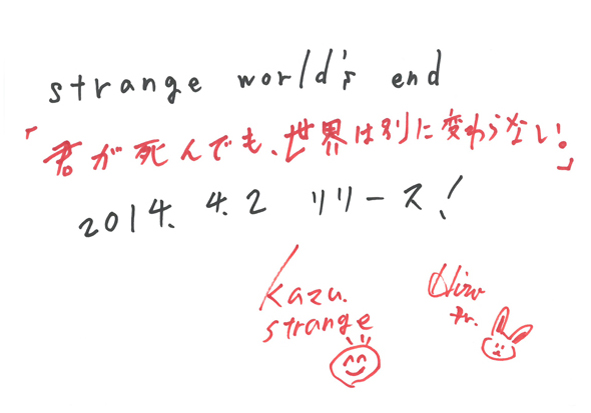 strange world's end
「君が死んでも、世界は別に変わらない。」
2014. 4. 2 リリース！
Kazu.
strange
Hiro